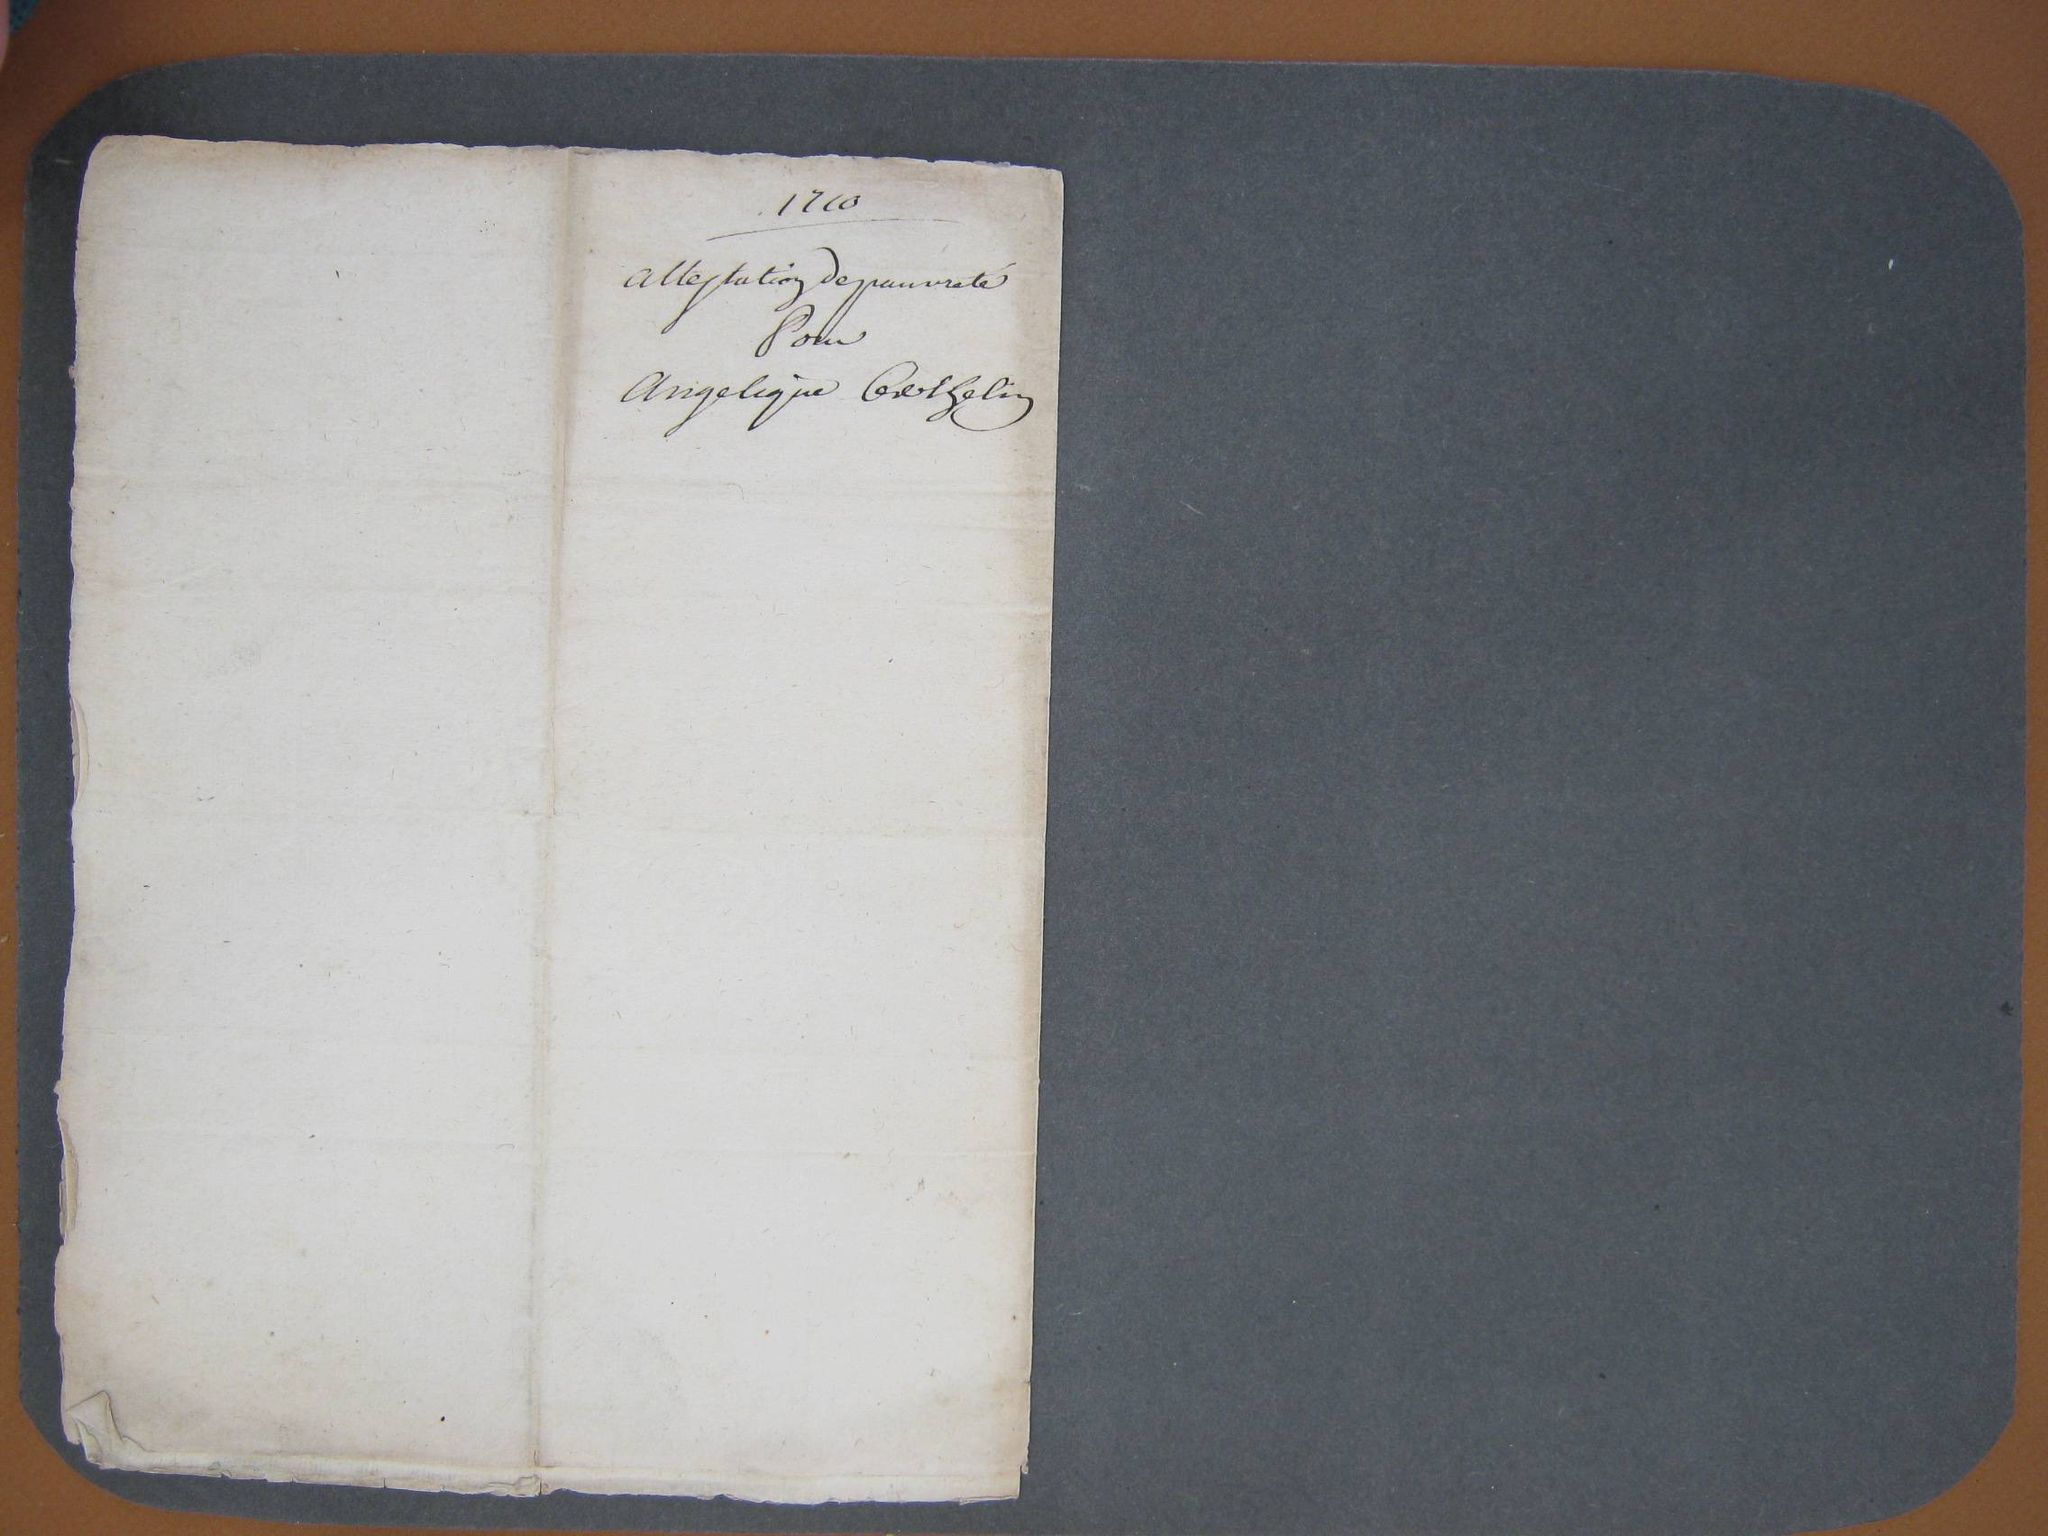 1710
attestation de pauvreté
Pour
Angelique Berthelin